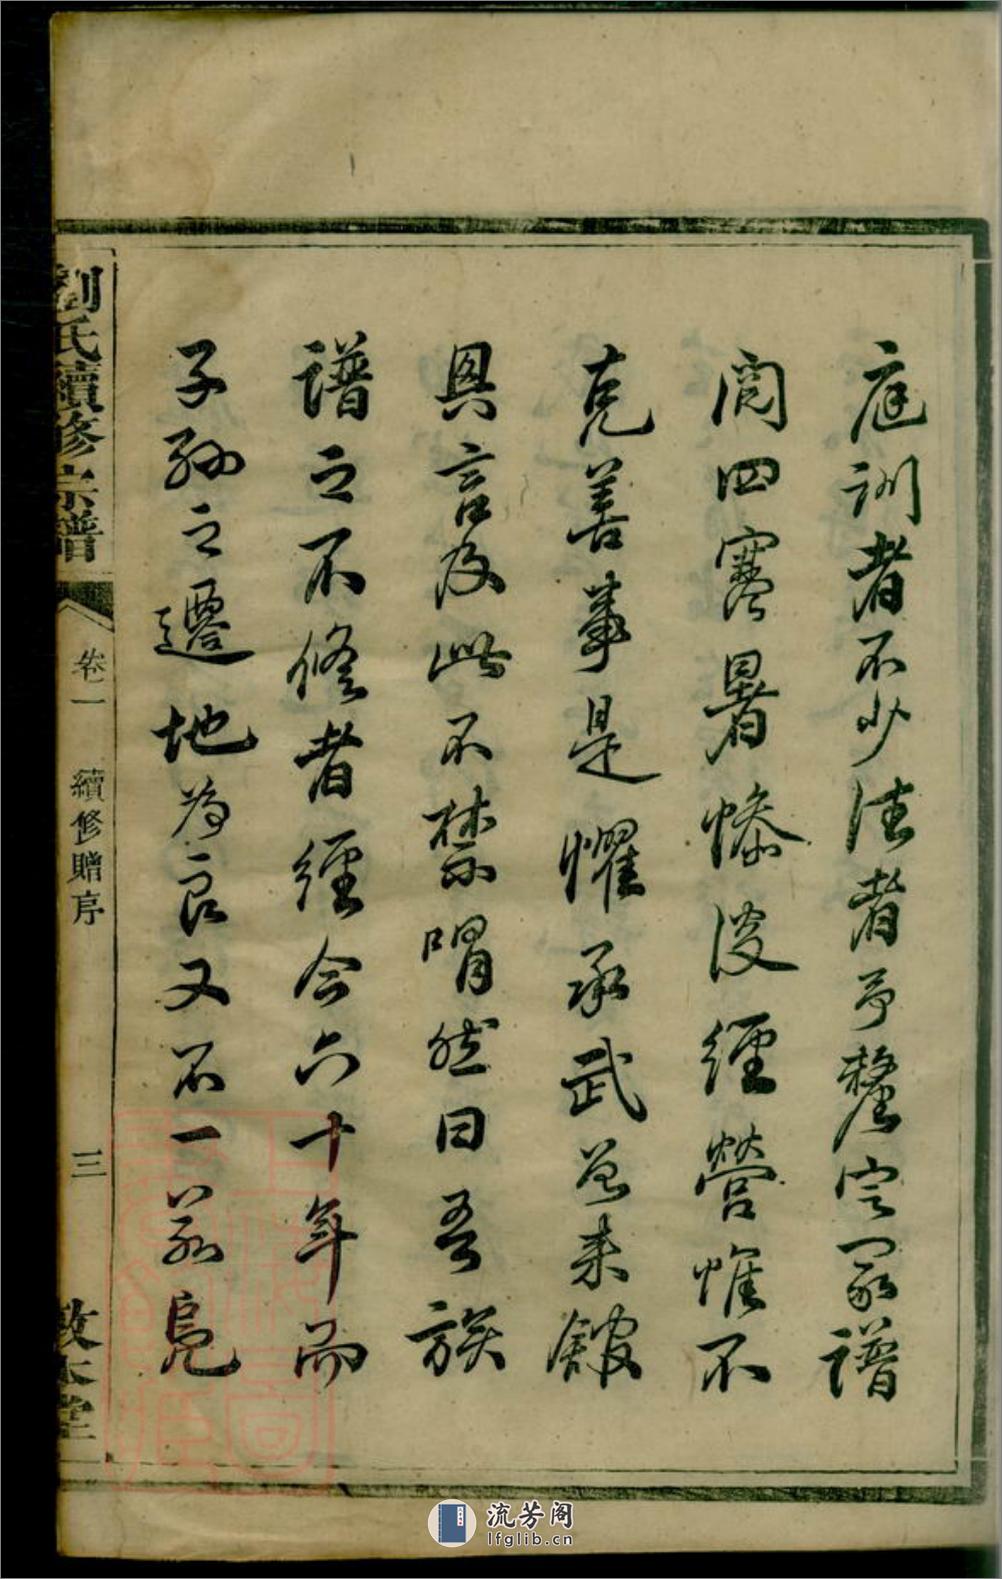 庭訓者不少法者予釐定冢譜
閱四寒暑慘淡經營惟不
克善事是懼承武兄來館
與言及此不禁喟然曰吾族
譜之不修者經今六十年而
子孫之遷地為良又不一前
劉氏續修宗譜
卷一
續修贈序
三
敦本堂
流芳阁
lfglib.cn